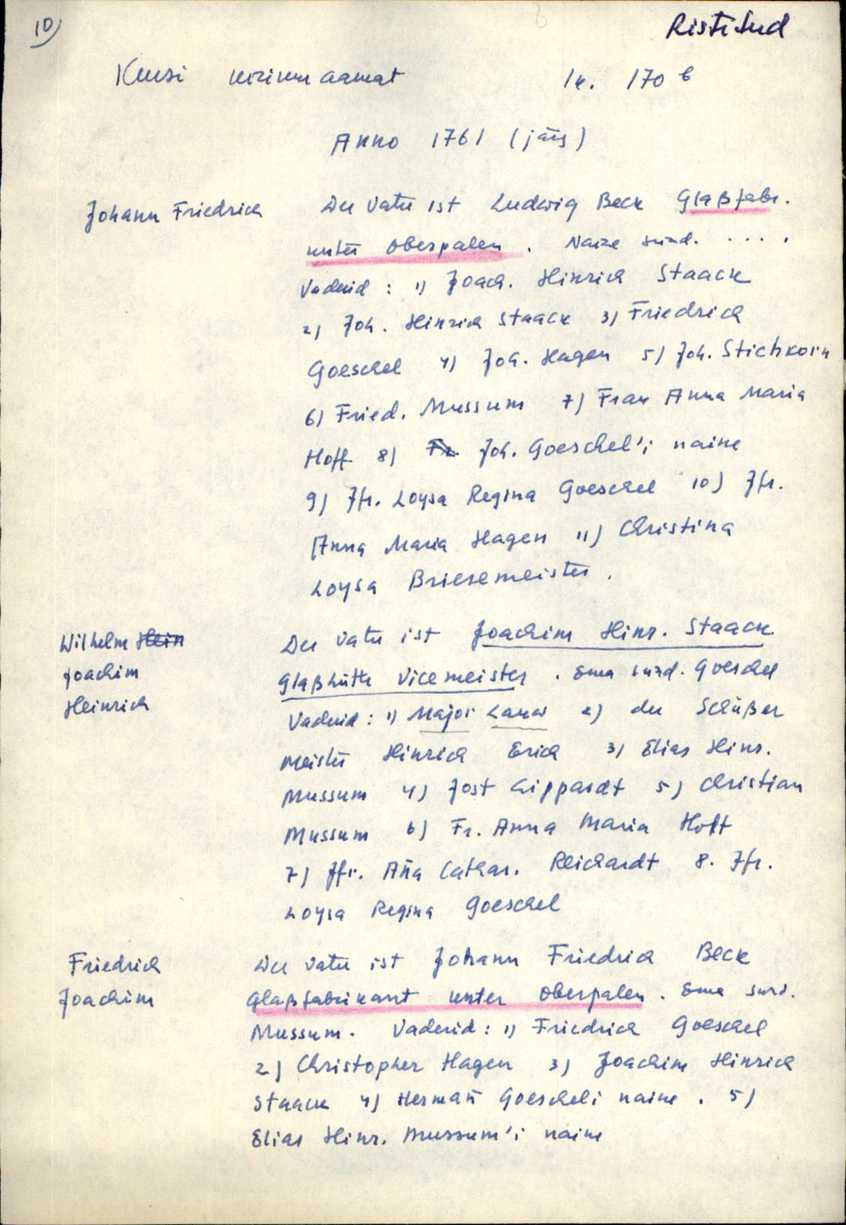 10)
Ristitud
Kursi kirikuraamat lk. 170 b
Anno 1761 (järg)
Johann Friedrich Der Vater ist Ludwig Beck Glaßfabr.
unter Oberpalen. Naine sünd. ....
Vaderid: 1) Joach. Hinrich Staack
2) Joh. Hinrich Staack 3) Friedrich
Goeschel 4) Joh. Hagen 5) Joh. Stichkorn
6) Fried. Mussum 7) Frau Anna Maria
Hoff 8) Fr. Joh. Goeschel'i naine
9) Jfr. Loysa Regina Goeschel 10) Jfr.
Anna Maria Hagen 11) Christina
Loysa Briesemeister.
Wilhelm Hein Der Vater ist Joachim Hinr. Staack
Joachim Glaßhütte Vicemeister. Ema sünd. Goeschel
Heinrich Vaderid: 1) Major Lauw 2) der Schüßer
Meister Hinrich Erich 3) Elias Hinr.
Mussum 4) Jost Gippardt 5) Christian
Mussum 6) Fr. Anna Maria Hoff
7) Jfr. Aña Cathar. Reichardt 8. Jfr.
Loysa Regina Goeschel
Friedrich Der Vater ist Johann Friedrich Beck
Joachim Glaßfabrikant unter Oberpalen. Ema sünd.
Mussum. Vaderid: 1) Friedrich Goeschel
2) Christopher Hagen 3) Joachim Hinrich
Staack 4) Herman̄ Goescheli naine. 5)
Elias Hinr. Mussum'i naine